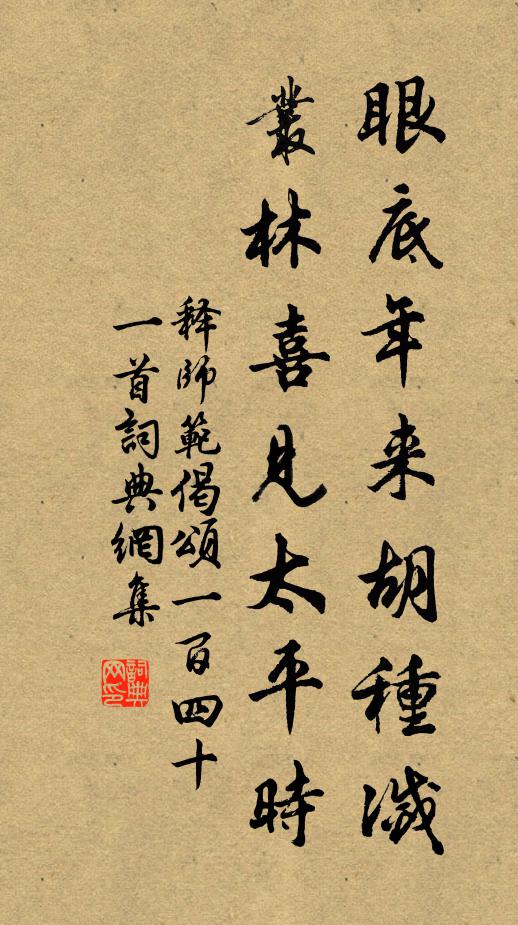 眼底年来胡種滅
叢林喜見太平時
释師範偈頌一百四十
一首詞典網集
詞典网印